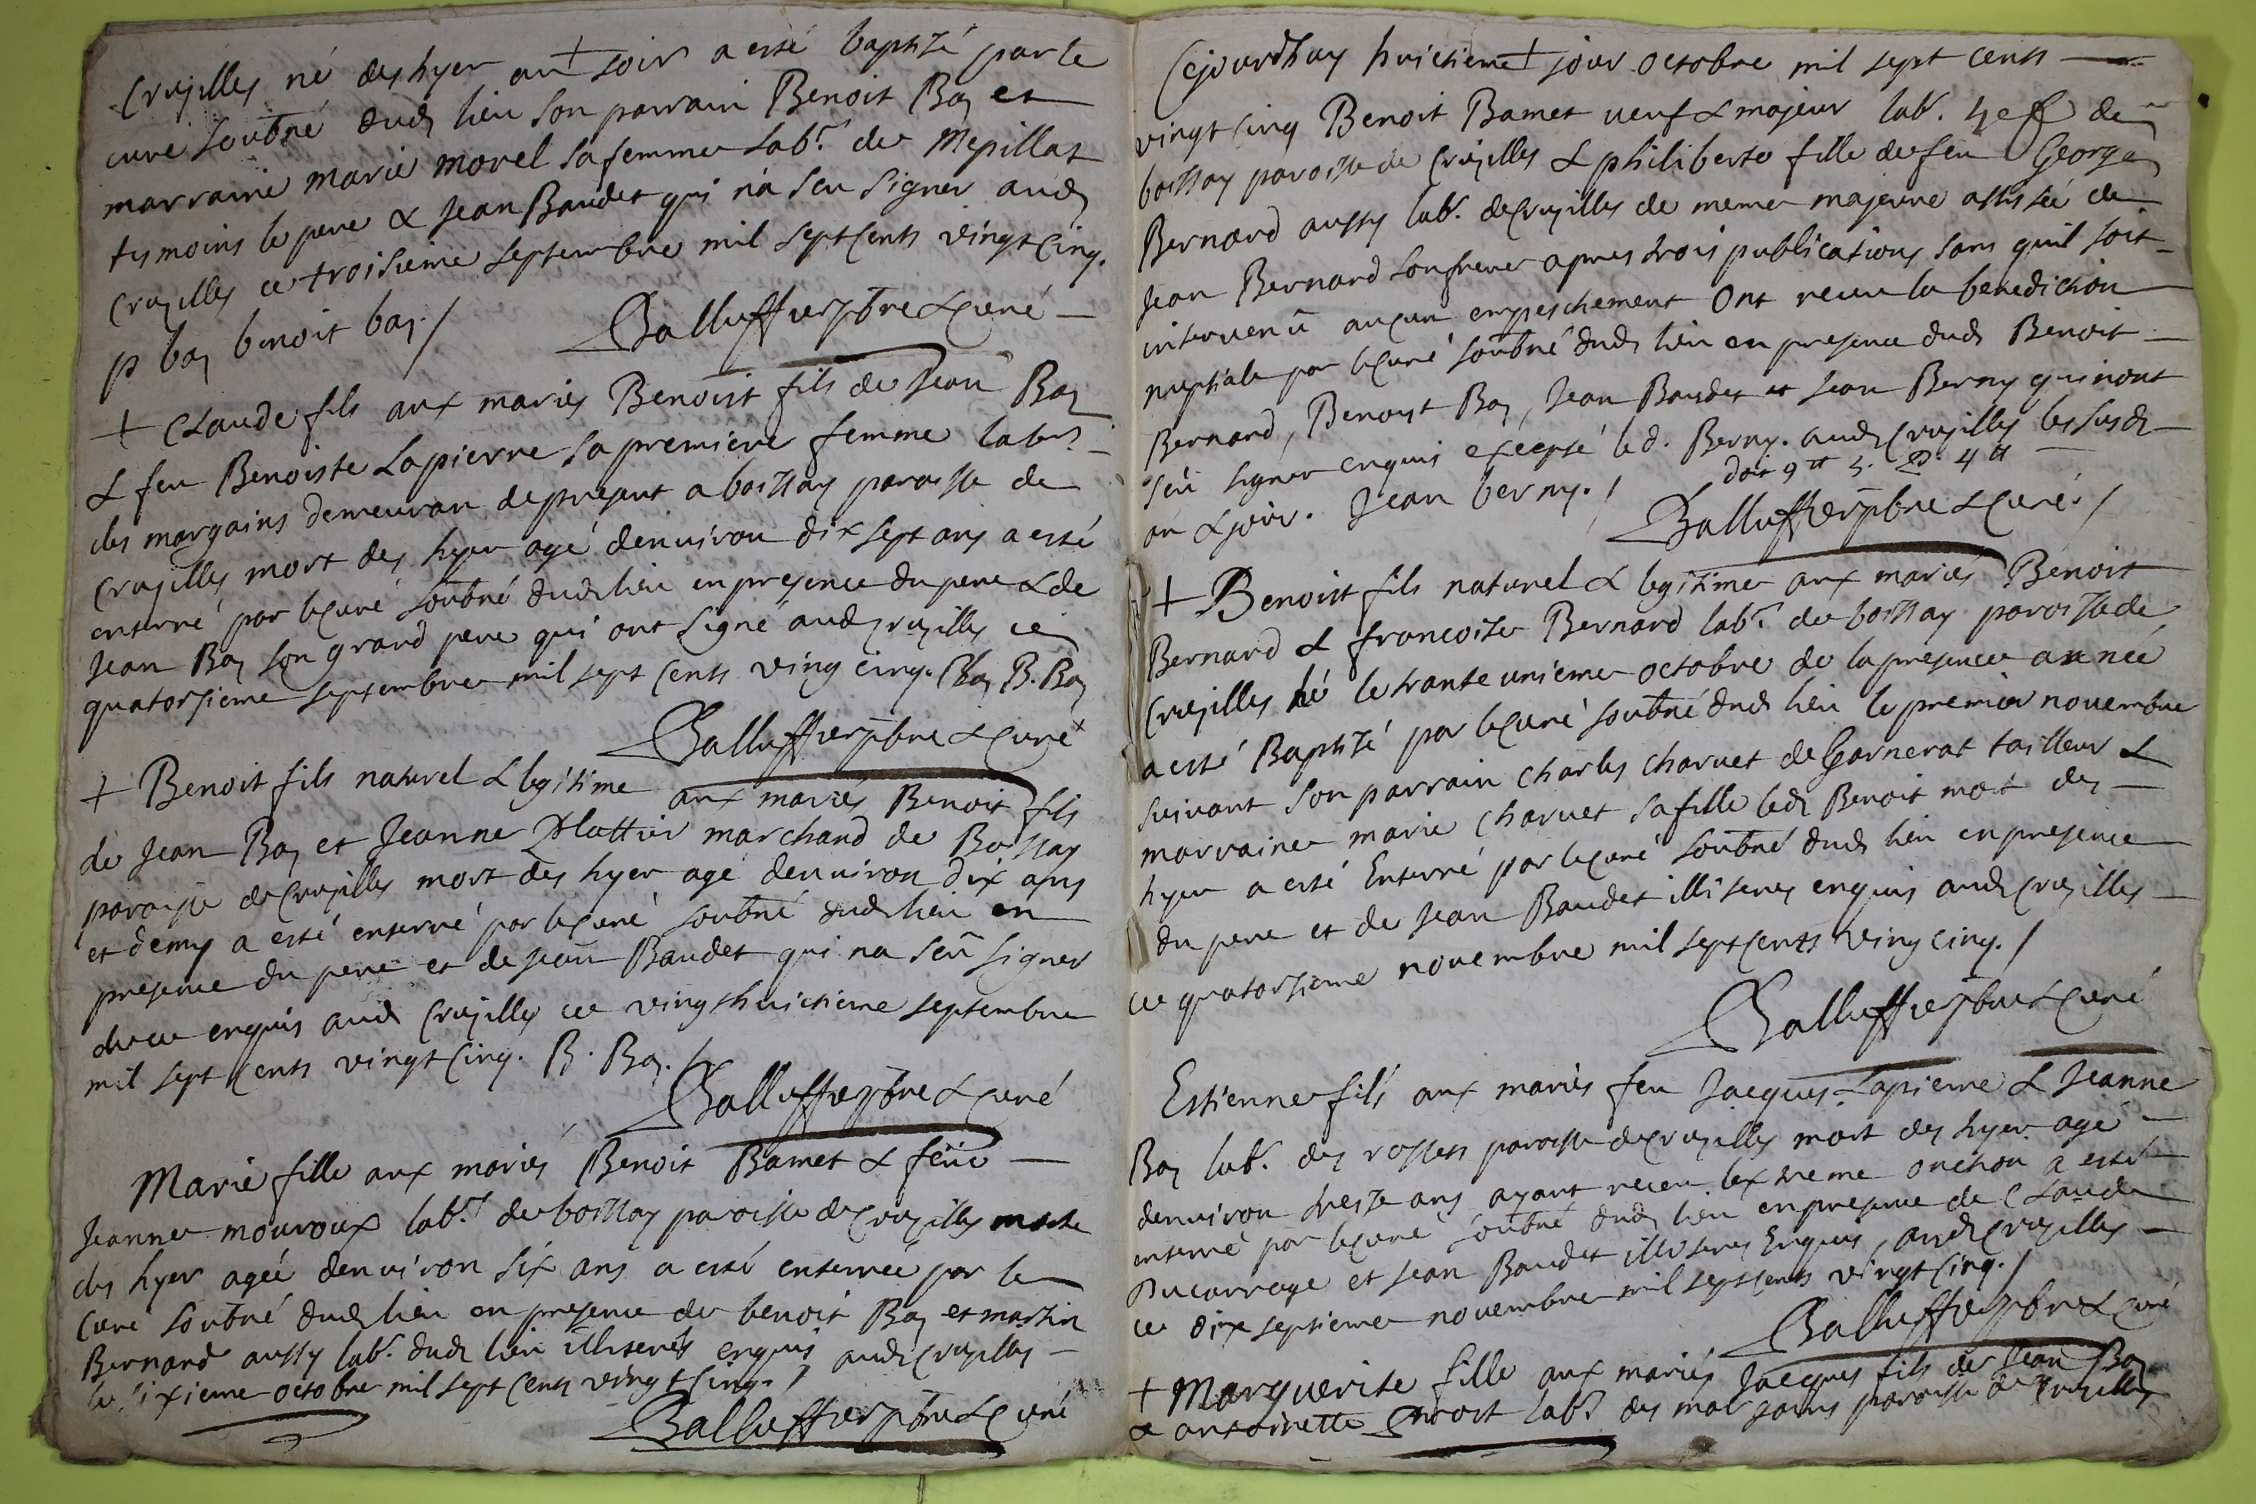 Crusilles né des hyer au soir a esté baptisé par le
curé soubné dudt lieu son parrain Benoit Bay et
marraine marie morel sa femme labr. de Mepillat
tesmoins le pere & Jean Baudet qui n'a seu signer audt
Crusilles ce troisieme septembre mil sept cents vingt cinq.
p bay benoit bay. /
Balluffier pbre & curé
+ Claude fils aux mariés Benoist fils de Jean Bay
& feu Benoiste Lapierre sa premiere femme labrs.
des margains demeuran de present a boissay paroisse de
Crusilles mort des hyer agé denviron dix sept ans a esté
enterré par le curé soubné dudt lieu en presence du pere & de
Jean Bay son grand pere qui ont signé audt Crusilles ce
quatorsieme septembre mil sept cents ving cinq. J bay B. Bay
Balluffier pbre & curé
+ Benoit fils naturel & legitime aux mariés Benoit fils
de Jean Bay et Jeanne Plattier marchand de Boissay
paroisse de Crusilles mort des hyer agé denviron dix ans
et demy a esté enterré par le curé soubné dudt lieu en
presence du pere et de Jean Baudet qui na seu signer
de ce enquis audt Crusilles ce vingt huictieme septembre
mil sept cents vingt cinq. B. Bay. /
Balluffier pbre & curé
Marie fille aux mariés Benoit Bamet & feue
Jeanne mouroux labr. de boissay paroisse de Crusilles morte
des hyer agée denviron six ans a esté enterrée par le
curé soubné dudt lieu en presence de benoit Bay et martin
Bernard aussy labr. dudt lieu illiterés enquis audt Crusilles
le sixieme octobre mil sept cents vingt cinq. /
Balluffier pbre & curé
Cejourdhuy huictieme jour octobre mil sept cents
vingt cinq Benoit Bamet veuf & majeur labr. de
boissay paroisse de Crusilles & philiberte fille de feu George
Bernard aussy labr. de Crusilles de meme majeure assistée de
Jean Bernard son frere apres trois publications sans quil soit
intervenu aucun empeschement Ont receu la benediction
nuptiale par le curé soubné dudt lieu en presence dudt Benoit
Bernard, Benoist Bay, Jean Baudet et Jean Berny qui n'ont
seu signer enquis excepté led. Berny. audt Crusilles les susdt
an & jour. Jean berny. /
Balluffier pbre & curé. /
+ Benoist fils naturel & legitime aux mariés Benoit
Bernard & francoise Bernard labr. de boissay paroisse de
Crusilles né le trante unieme octobre de la presente année
a esté Baptisé par le curé soubné dudt lieu le premier novembre
suivant son parrain charles charvet de Garnerat tailleur &
marraine marie charvet sa fille ledt Benoit mort des
hyer a esté Enterré par le curé soubné dudt lieu en presence
du pere et de Jean Baudet illiteres enquis audt Crusilles
ce quatorsieme novembre mil sept cents ving cinq. /
Balluffier pbre & curé
Estienne fils aux mariés feu Jacques Lapierre & Jeanne
Bay labr. des rossets paroisse de Crusilles mort des hyer agé
denviron treste ans ayant receu lextreme onction a esté
enterré par le curé soubné dudt lieu en presence de Claude
Ducarroge et Jean Baudet illiteres Enquis, audt Crusilles
ce dix septieme novembre mil sept cents vingt cinq. /
Balluffier pbre & curé
+ Marguerite fille aux mariés Jacques fils de Jean Bay
& antoinette labr. des margains paroisse de Crusilles